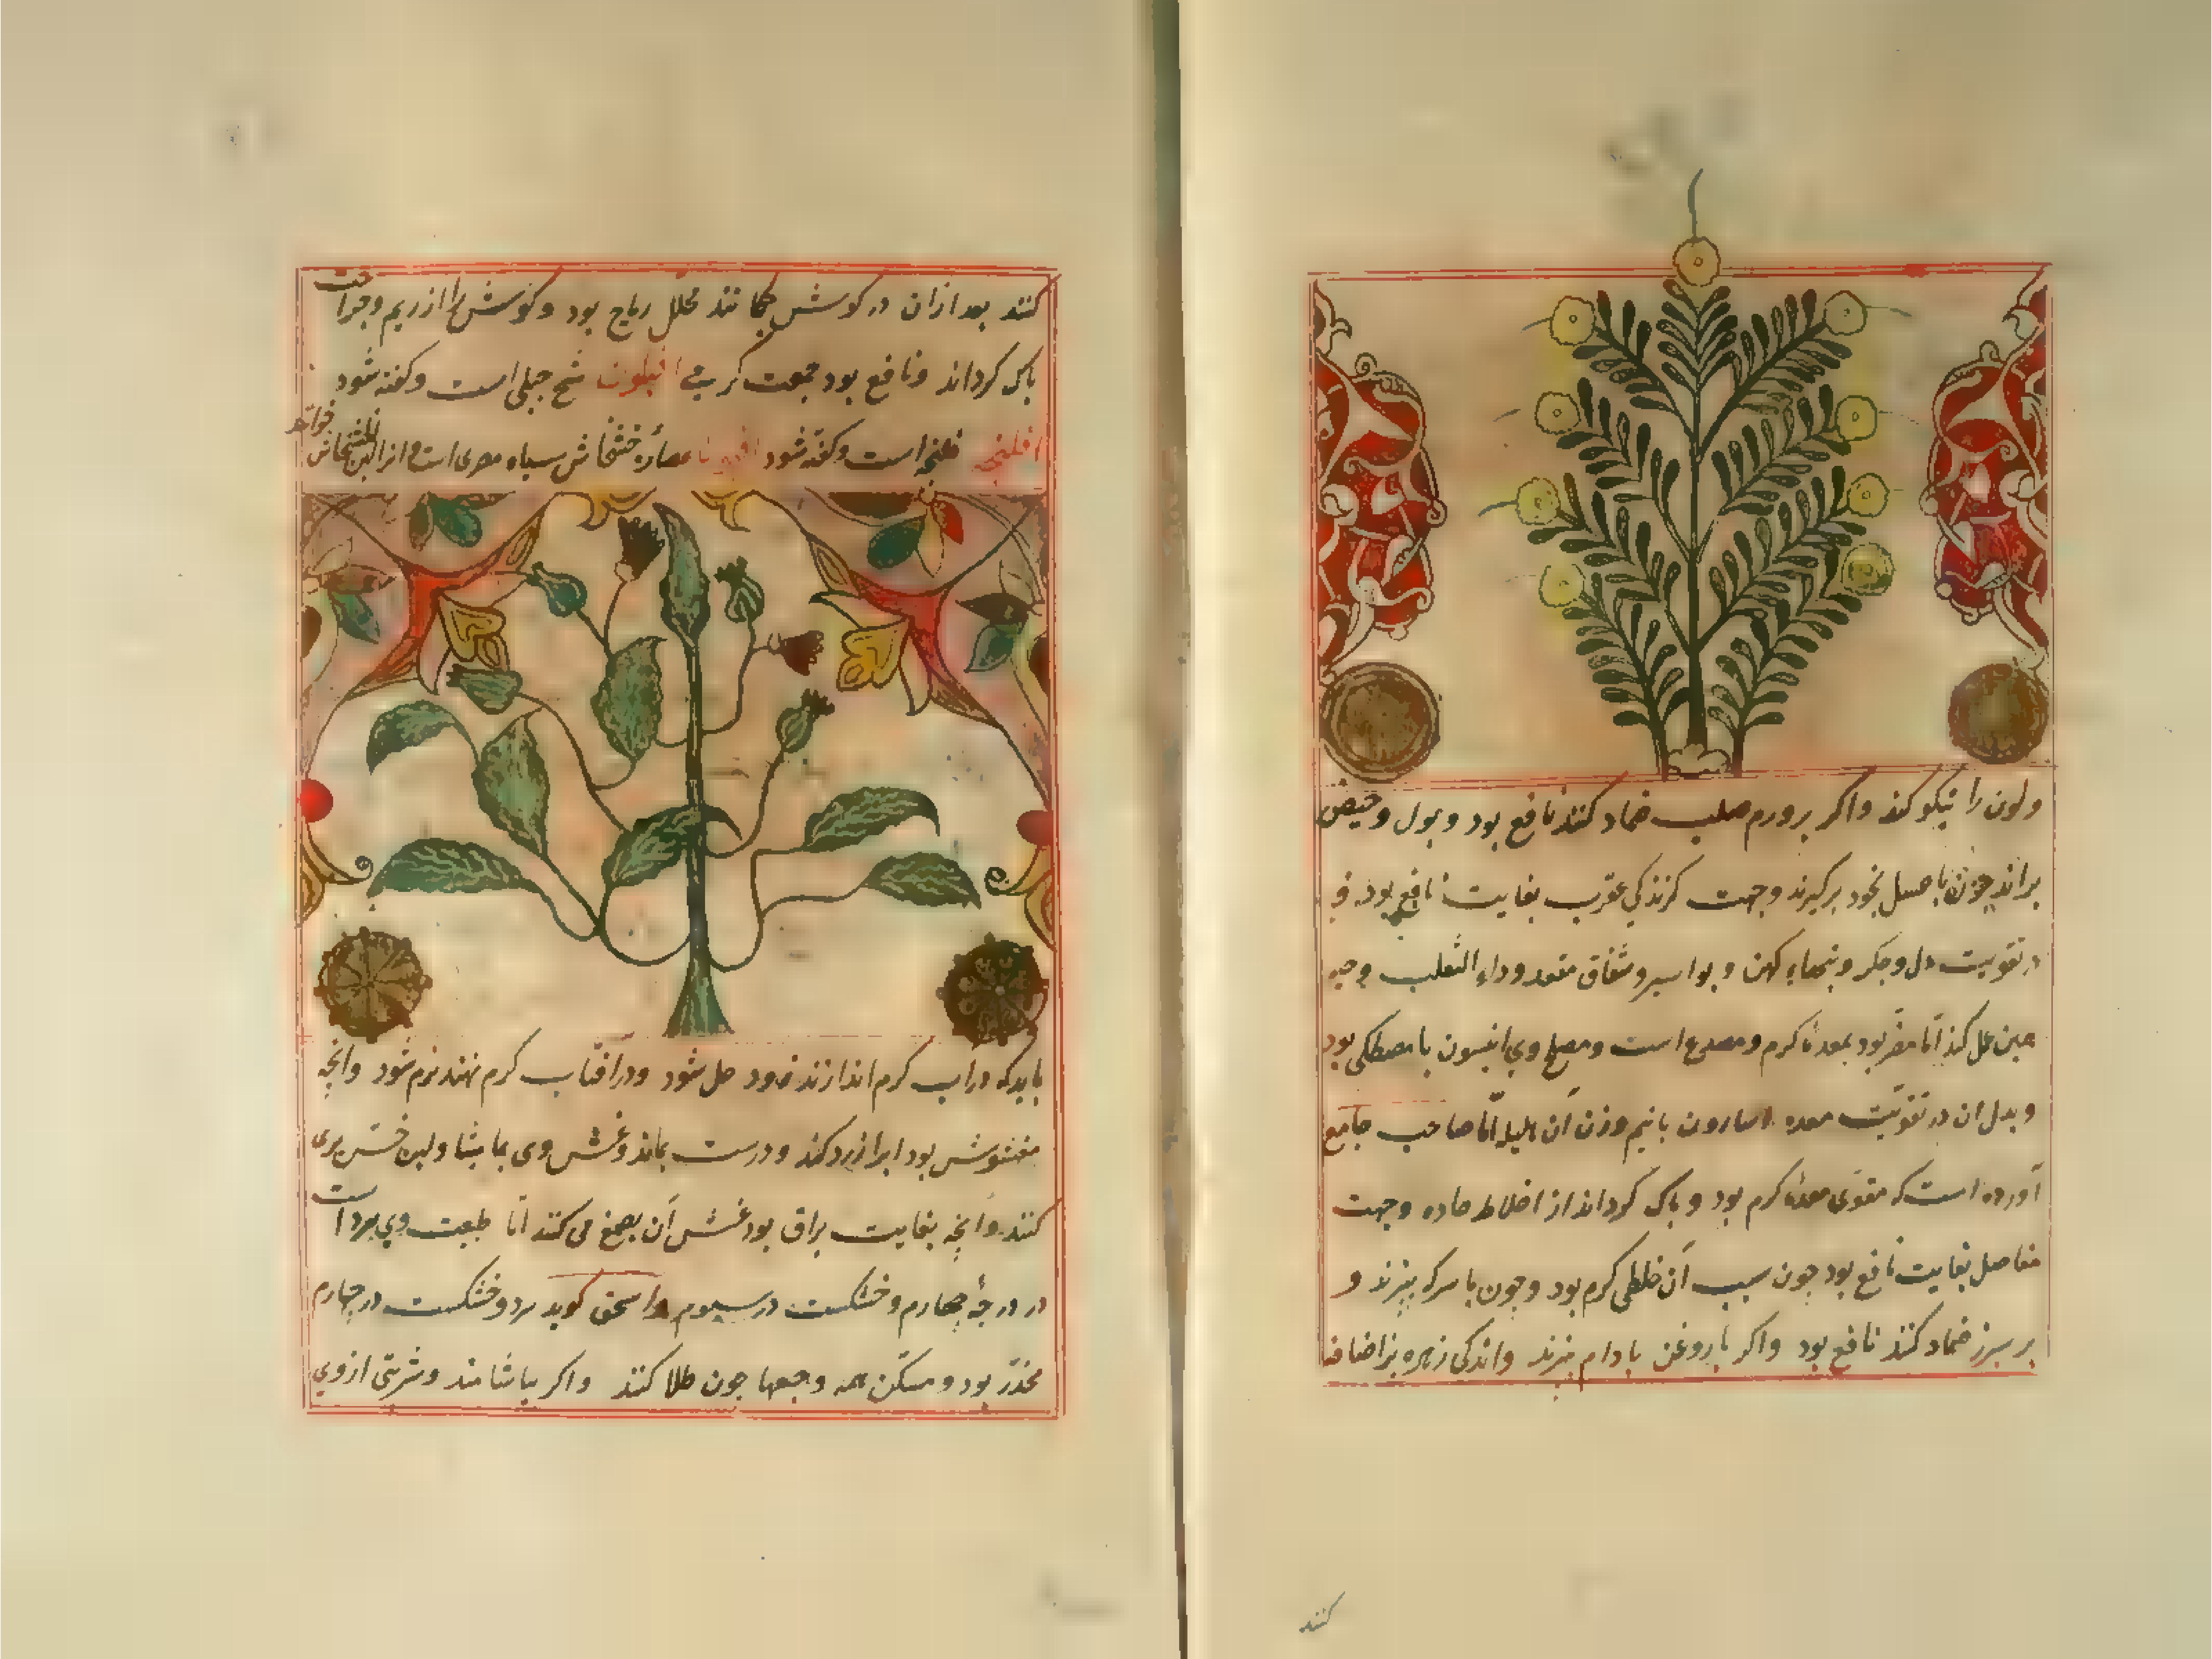 ولون را نیکو کند واکر برورم صلب ضماد کنند نافع بود وبول وحیض
براند چون با عسل بخود برکیرند وجهت کزندکی عقرب بغایت نافع بود و
در تقویت دل وجکر وتبهاء کهن وبواسیر وشقاق مقعد وداء الثعلب وحیه
همین عمل کند اما مضر بود بمعدهٔ کرم ومصدع است ومصلح وی انیسون با مصطکی بود
وبدل ان در تقویت معده اسارون با نیم وزن آن هلیله اما صاحب جامع
آورده است که مقوی معدهٔ کرم بود وباک کرداند از اخلاط حاده وجهت
مفاصل بغایت نافع بود جون سبب آن خلطی کرم بود وجون با سرکه بپزند و
بر سبرز ضماد کنند نافع بود واکر با روغن بادام بپزند واندکی زهره بز اضافه
کنند
کنند بعد ازان در کوش جکانند محلل ریاح بود وکوش را از ریم وجراحت
باک کرداند ونافع بود جهت کری افیلون شیح جبلی است وکفته شود
افلنجه فلنجه است وکفته شود افیون عصارهٔ خشخاش سیاه مصری است
باید که در اب کرم اندازند زود حل شود ودر افتاب کرم نهند نرم شود وانجه
مغشوش بود ابرا زرد کند ودرست بماند وغش وی بمامیثا ولبن خس بری
کنند وانجه بغایت براق بود غش آن بصمغ می کنند اما طبیعت وی سرد است
در درجهٔ چهارم وخشکست در سیوم واسحق کوید سرد وخشکست در چهارم
مخدر بود ومسکن همه وجعها جون طلا کنند واکر بیاشامند وشربتی ازوی